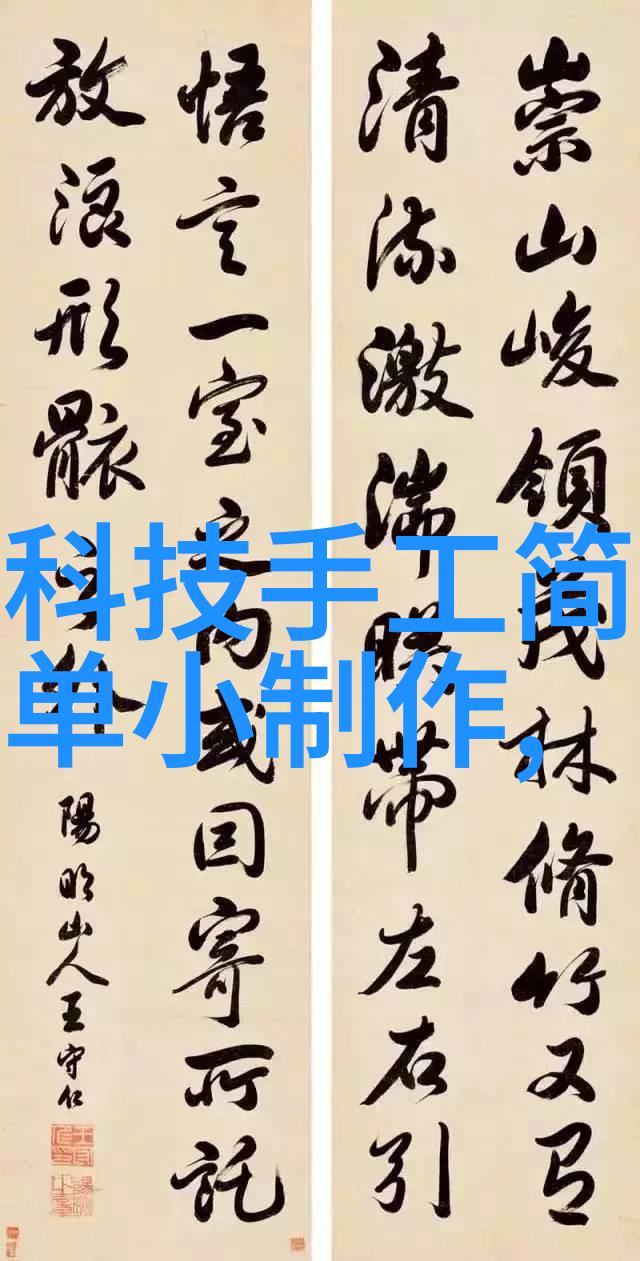 科技手工简
单小制作,
崇山峻領茂林脩竹又有
清流激湍暎帶左右引
悟言一室之内或因寄所託
放浪形骸之外
陽明山人王守仁